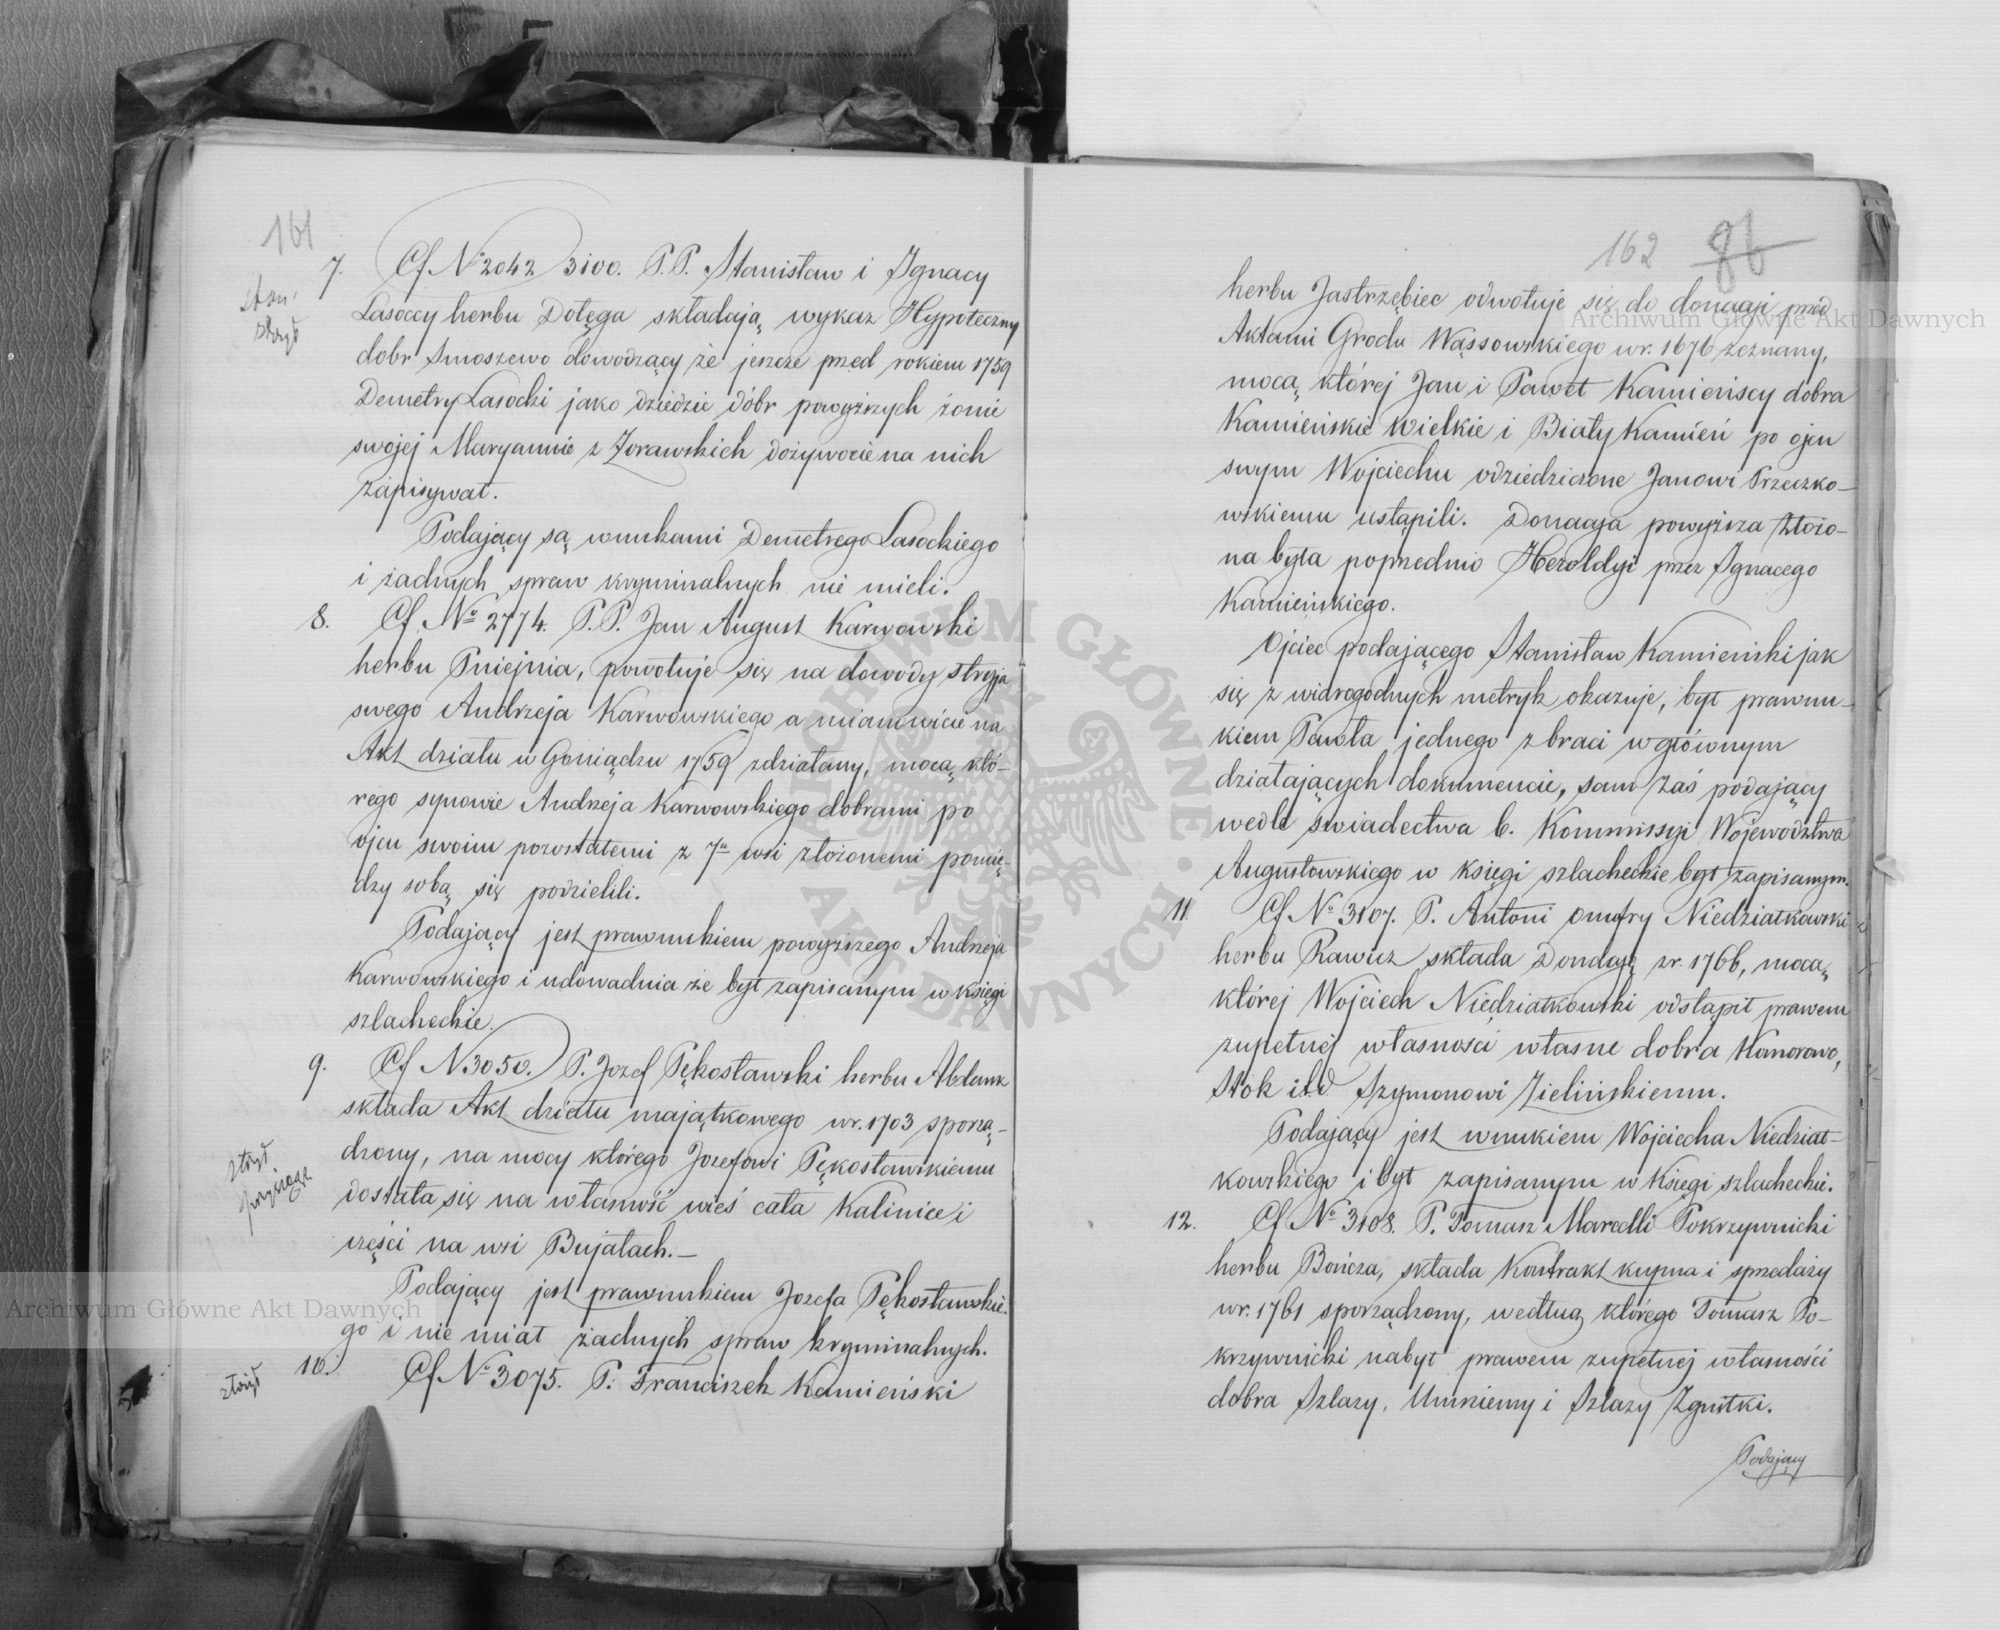 161
7. Cf No 2042/3100. P.P. Stanisław i Ignacy
Lasoccy herbu Dołęga składają wykaz Hypoteczny
dobr Smoszewo dowodzący że jeszcze przed rokiem 1759
Demetry Lasocki jako dziedzic dóbr powyższych żonie
swojej Maryannie z Zorawskich dożywocie na nich
zapisywał.
Podający są wnukami Demetrego Lasockiego
i żadnych spraw kryminalnych nie mieli.
8. Cf. No 2774. P.P. Jan August Karwowski
herbu Pniejnia, powołuje się na dowody stryja
swego Andrzeja Karwowskiego a mianowicie na
Akt działu w Goniądzu 1759 zdziałany, mocą któ-
rego synowie Andrzeja Karwowskiego dobrami po
ojcu swoim pozostałemi z 7u wsi złożonemi pomię-
dzy sobą się podzielili.
Podający jest prawnukiem powyższego Andrzeja
Karwowskiego i udowadnia że był zapisanym w księgi
szlacheckie.
9. Cf N 3050. P. Jozef Pękosławski herbu Abdank
składa Akt działu majątkowego w r. 1703 sporzą-
dzony, na mocy którego Jozefowi Pękosławskiemu
dostała się na własność wieś cała Kalinice i
części na wsi Bujałach.—
złożył
przysięgę
Podający jest prawnukiem Jozefa Pękosławskie-
go i nie miał żadnych spraw kryminalnych.
10. Cf No 3075. P. Franciszek Kamieński
złożył
162 86
herbu Jastrzębiec odwołuje się do donacji przed
Aktami Grodu Wąssowskiego w r. 1676 zeznany,
mocą której Jan i Paweł Kamieńscy dobra
Kamieńskie Wielkie i Biały Kamień po ojcu
swym Wojciechu odziedziczone Janowi Trzeczko-
wskiemu ustąpili. Donacya powyższa złożo-
na była poprzednio Heroldyi przez Ignacego
Kamieńskiego.
Ojciec podającego Stanisław Kamieński jak
się z widrogodnych metryk okazuje, był prawnu-
kiem Pawła jednego z braci w głównym
działających dokumencie, sam zaś podający
wedle świadectwa b. Kommissyi Województwa
Augustowskiego w księgi szlacheckie był zapisanym.
11. Cf No 3107. P. Antoni Onufry Niedziałkowski
herbu Rawicz składa Donację z r. 1766, mocą
której Wojciech Niedziałkowski odstąpił prawem
zupełnej własności własne dobra Kanorowo,
Stok itd Szymonowi Zielińskiemu.
Podający jest wnukiem Wojciecha Niedział-
kowskiego i był zapisanym w Księgi szlacheckie.
12. Cf No 3108. P. Tomasz Marcelli Pokrzywnicki
herbu Bończa, składa Kontrakt kupna i sprzedaży
w r. 1761 sporządzony, według którego Tomasz Po-
krzywnicki nabył prawem zupełnej własności
dobra Szlasy, Umniemy i Szlasy Zgnitki.
Podający
Archiwum Główne Akt Dawnych
Archiwum Główne Akt Dawnych
ARCHIWUM GŁÓWNE AKT DAWNYCH